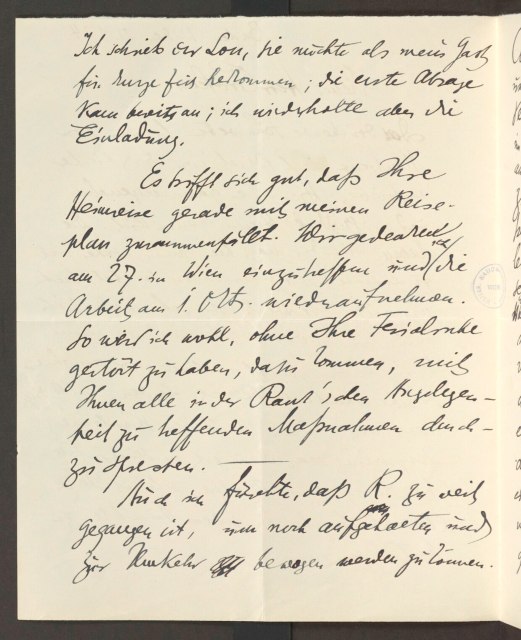 Ich schrieb der Lou, sie möchte als mein Gast
für kurze Zeit herkommen; die erste Absage
kam bereits an; ich wiederholte aber die
Einladung.
Es trifft sich gut, daß Ihre
Heimreise gerade mit meinem Reise-
plan zusammenfällt. Wir gedenken
am 27. in Wien einzutreffen und ich die
Arbeit am 1. Okt. wiederaufnehmen.
So werd ich wohl, ohne Ihre Ferialruhe
gestört zu haben, dazu kommen, mit
Ihnen alle in der Rank'schen Angelegen-
heit zu treffenden Maßnahmen durch-
zusprechen.
Auch ich fürchte, daß R. zu weit
gegangen ist, um noch aufgehalten und
zur Umkehr bewogen werden zu können.